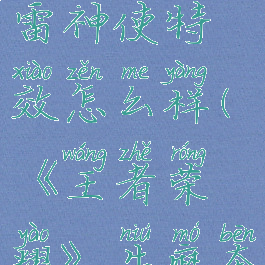 雷神使特
xiào zěn me yàng
效怎么样(
wáng zhě róng
《王者荣
yào niú mó běn
耀》牛魔本